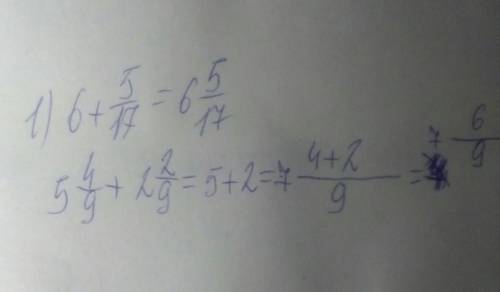 1) 6 + 5/17 = 6 5/17
5 4/9 + 2 2/9 = 5 + 2 = 7 4+2/9 = 7 6/9